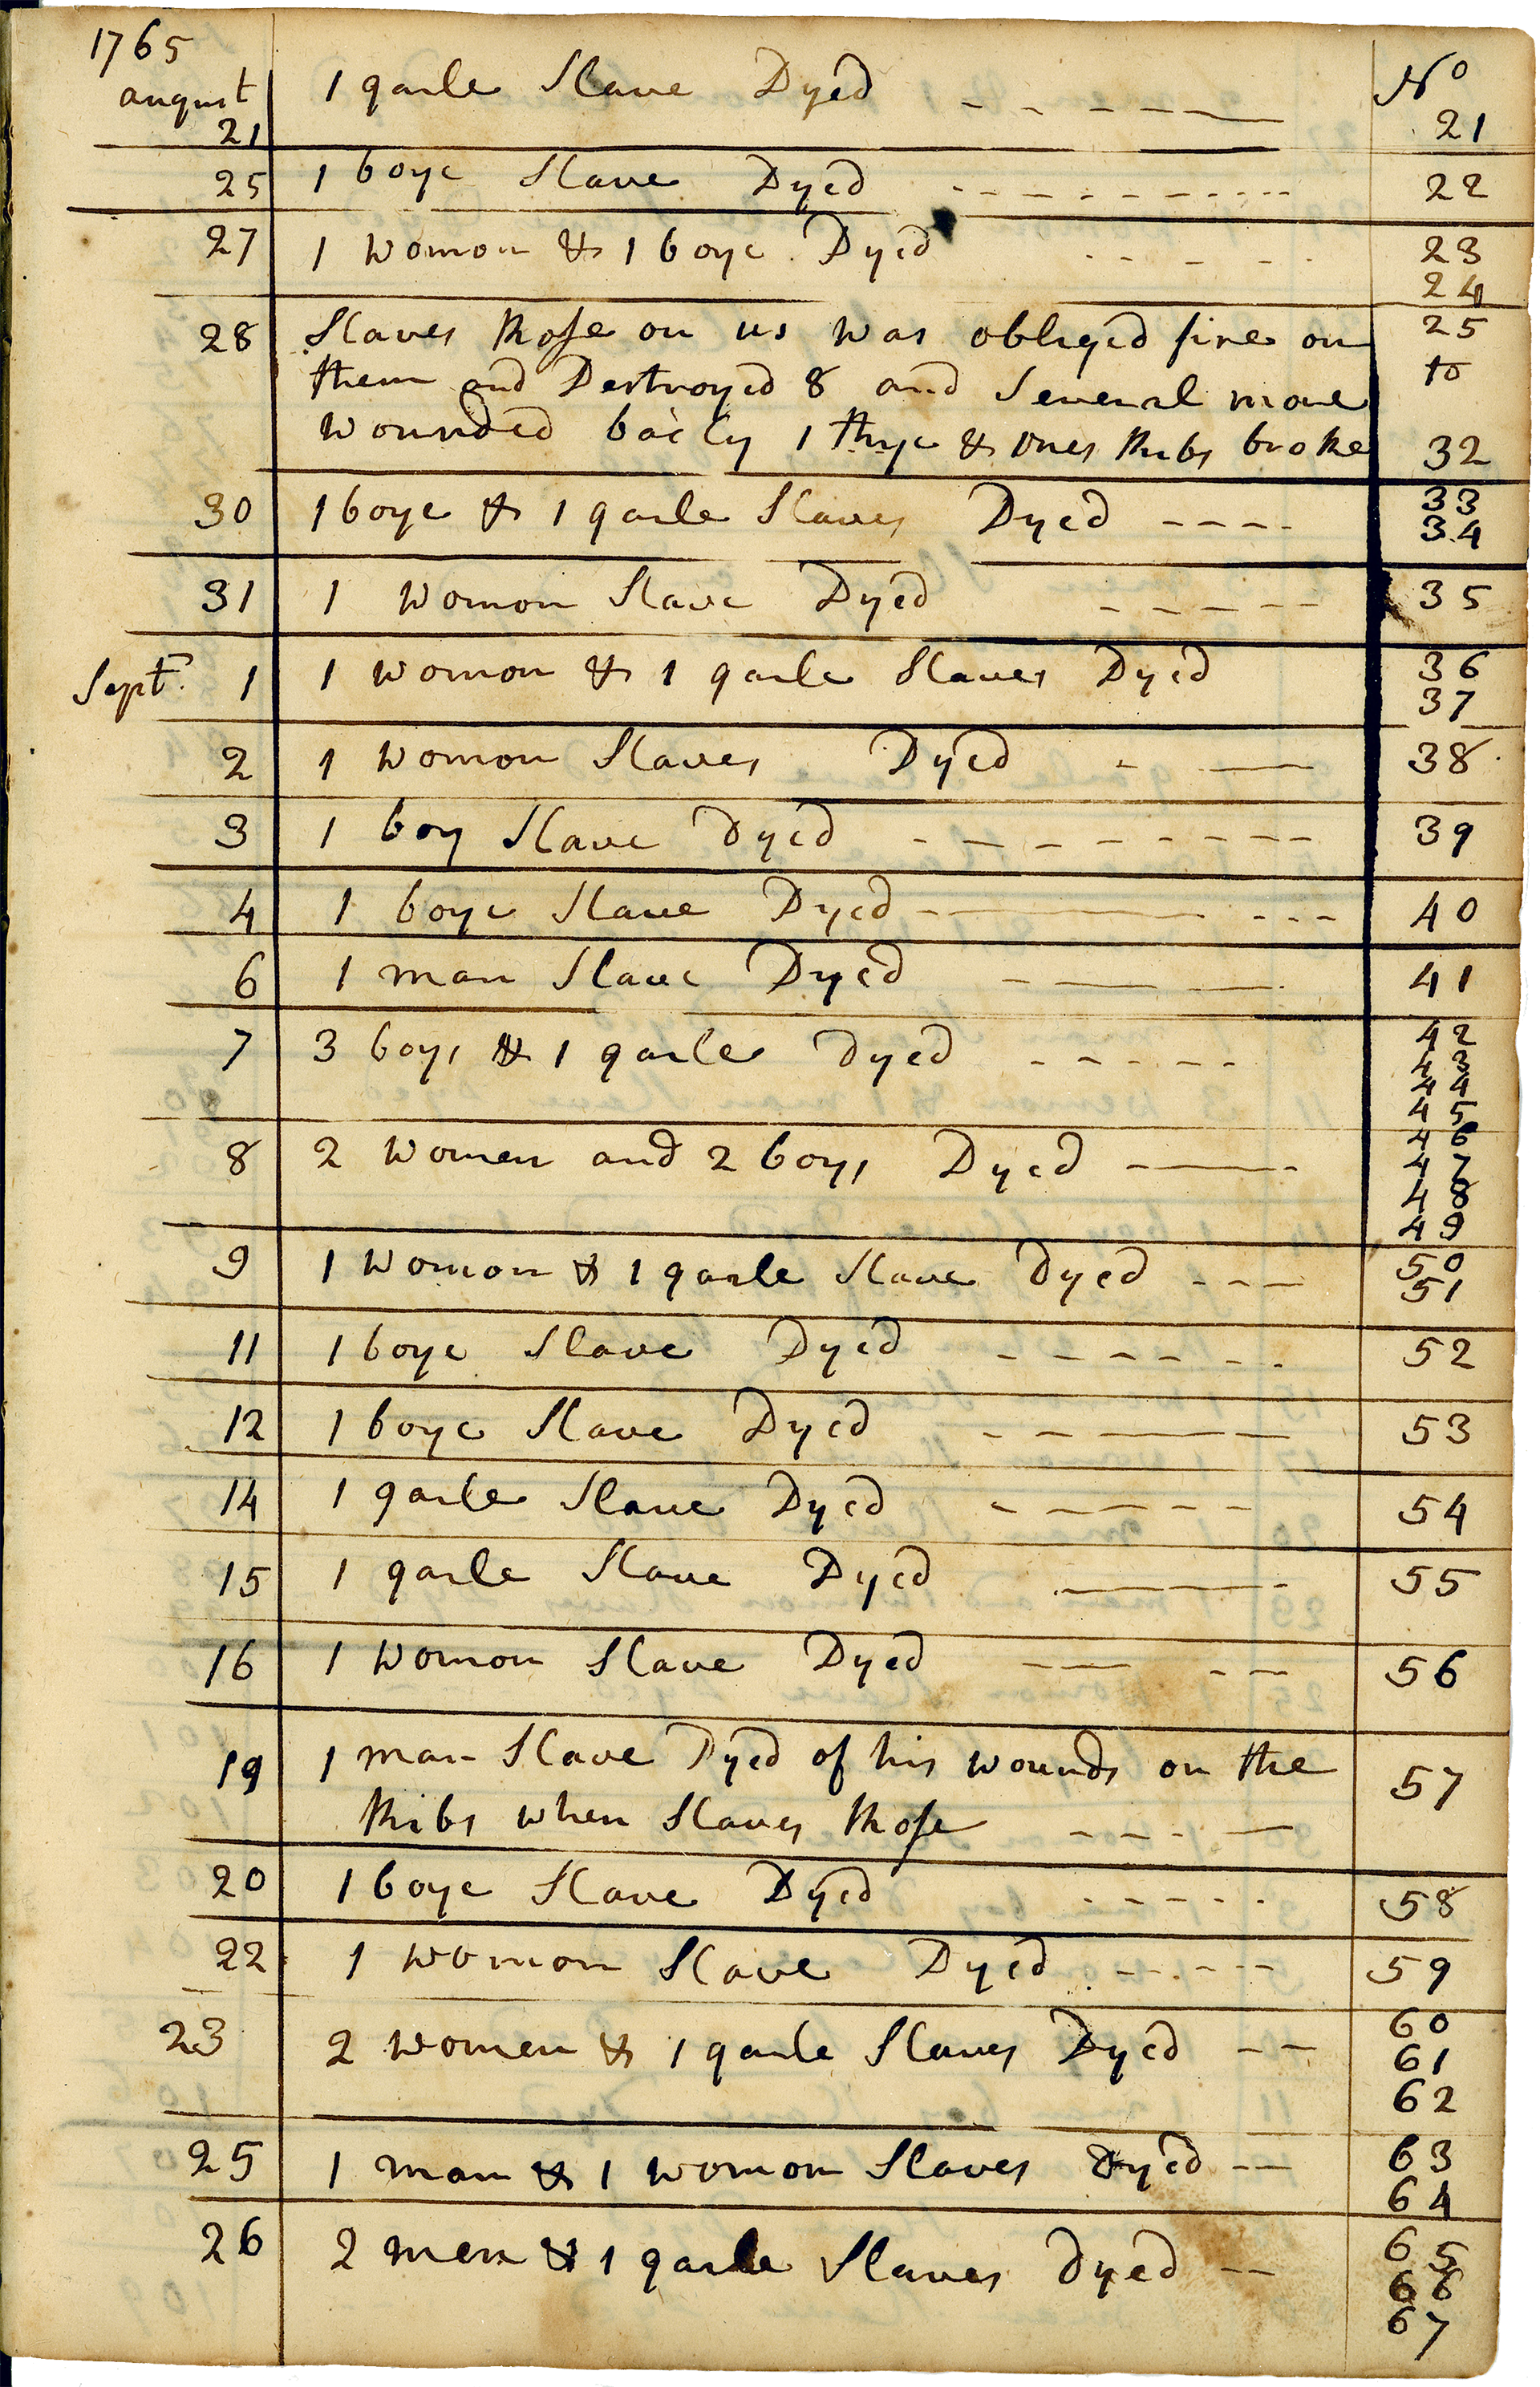 1765
august 1 garle Slave Dyed No
21 21
25 1 boye Slave Dyed 22
27 1 womon & 1 boye Dyed 23
24
28 Slaves Rose on us was obliged fire on 25
them and Destroyed 8 and Several more to
wounded badly 1 Thye & ones Ribs broke 32
30 1 boye & 1 garle Slaves Dyed 33
34
31 1 womon Slave Dyed 35
Sept. 1 1 womon & 1 garle Slaves Dyed 36
37
2 1 womon Slaves Dyed 38
3 1 boy Slave Dyed 39
4 1 boye Slave Dyed 40
6 1 man Slave Dyed 41
7 3 boys & 1 garle Dyed 42
43
44
45
8 2 women and 2 boys Dyed 46
47
48
49
9 1 womon & 1 garle Slave Dyed 50
51
11 1 boye Slave Dyed 52
12 1 boye Slave Dyed 53
14 1 garle Slave Dyed 54
15 1 garle Slave Dyed 55
16 1 womon Slave Dyed 56
19 1 man Slave Dyed of his wounds on the 57
Ribs when Slaves Rose
20 1 boye Slave Dyed 58
22 1 womon Slave Dyed 59
23 2 women & 1 garle Slaves Dyed 60
61
62
25 1 man & 1 womon Slaves Dyed 63
64
26 2 men & 1 garle Slaves Dyed 65
66
67